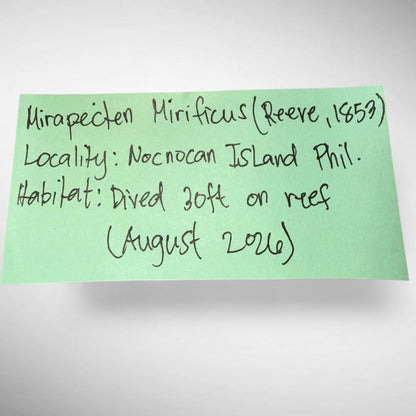 Mirapecten Mirificus (Reeve, 1853)
Locality: Nocnocan Island Phil.
Habitat: Dived 30ft on reef
(August 2026)